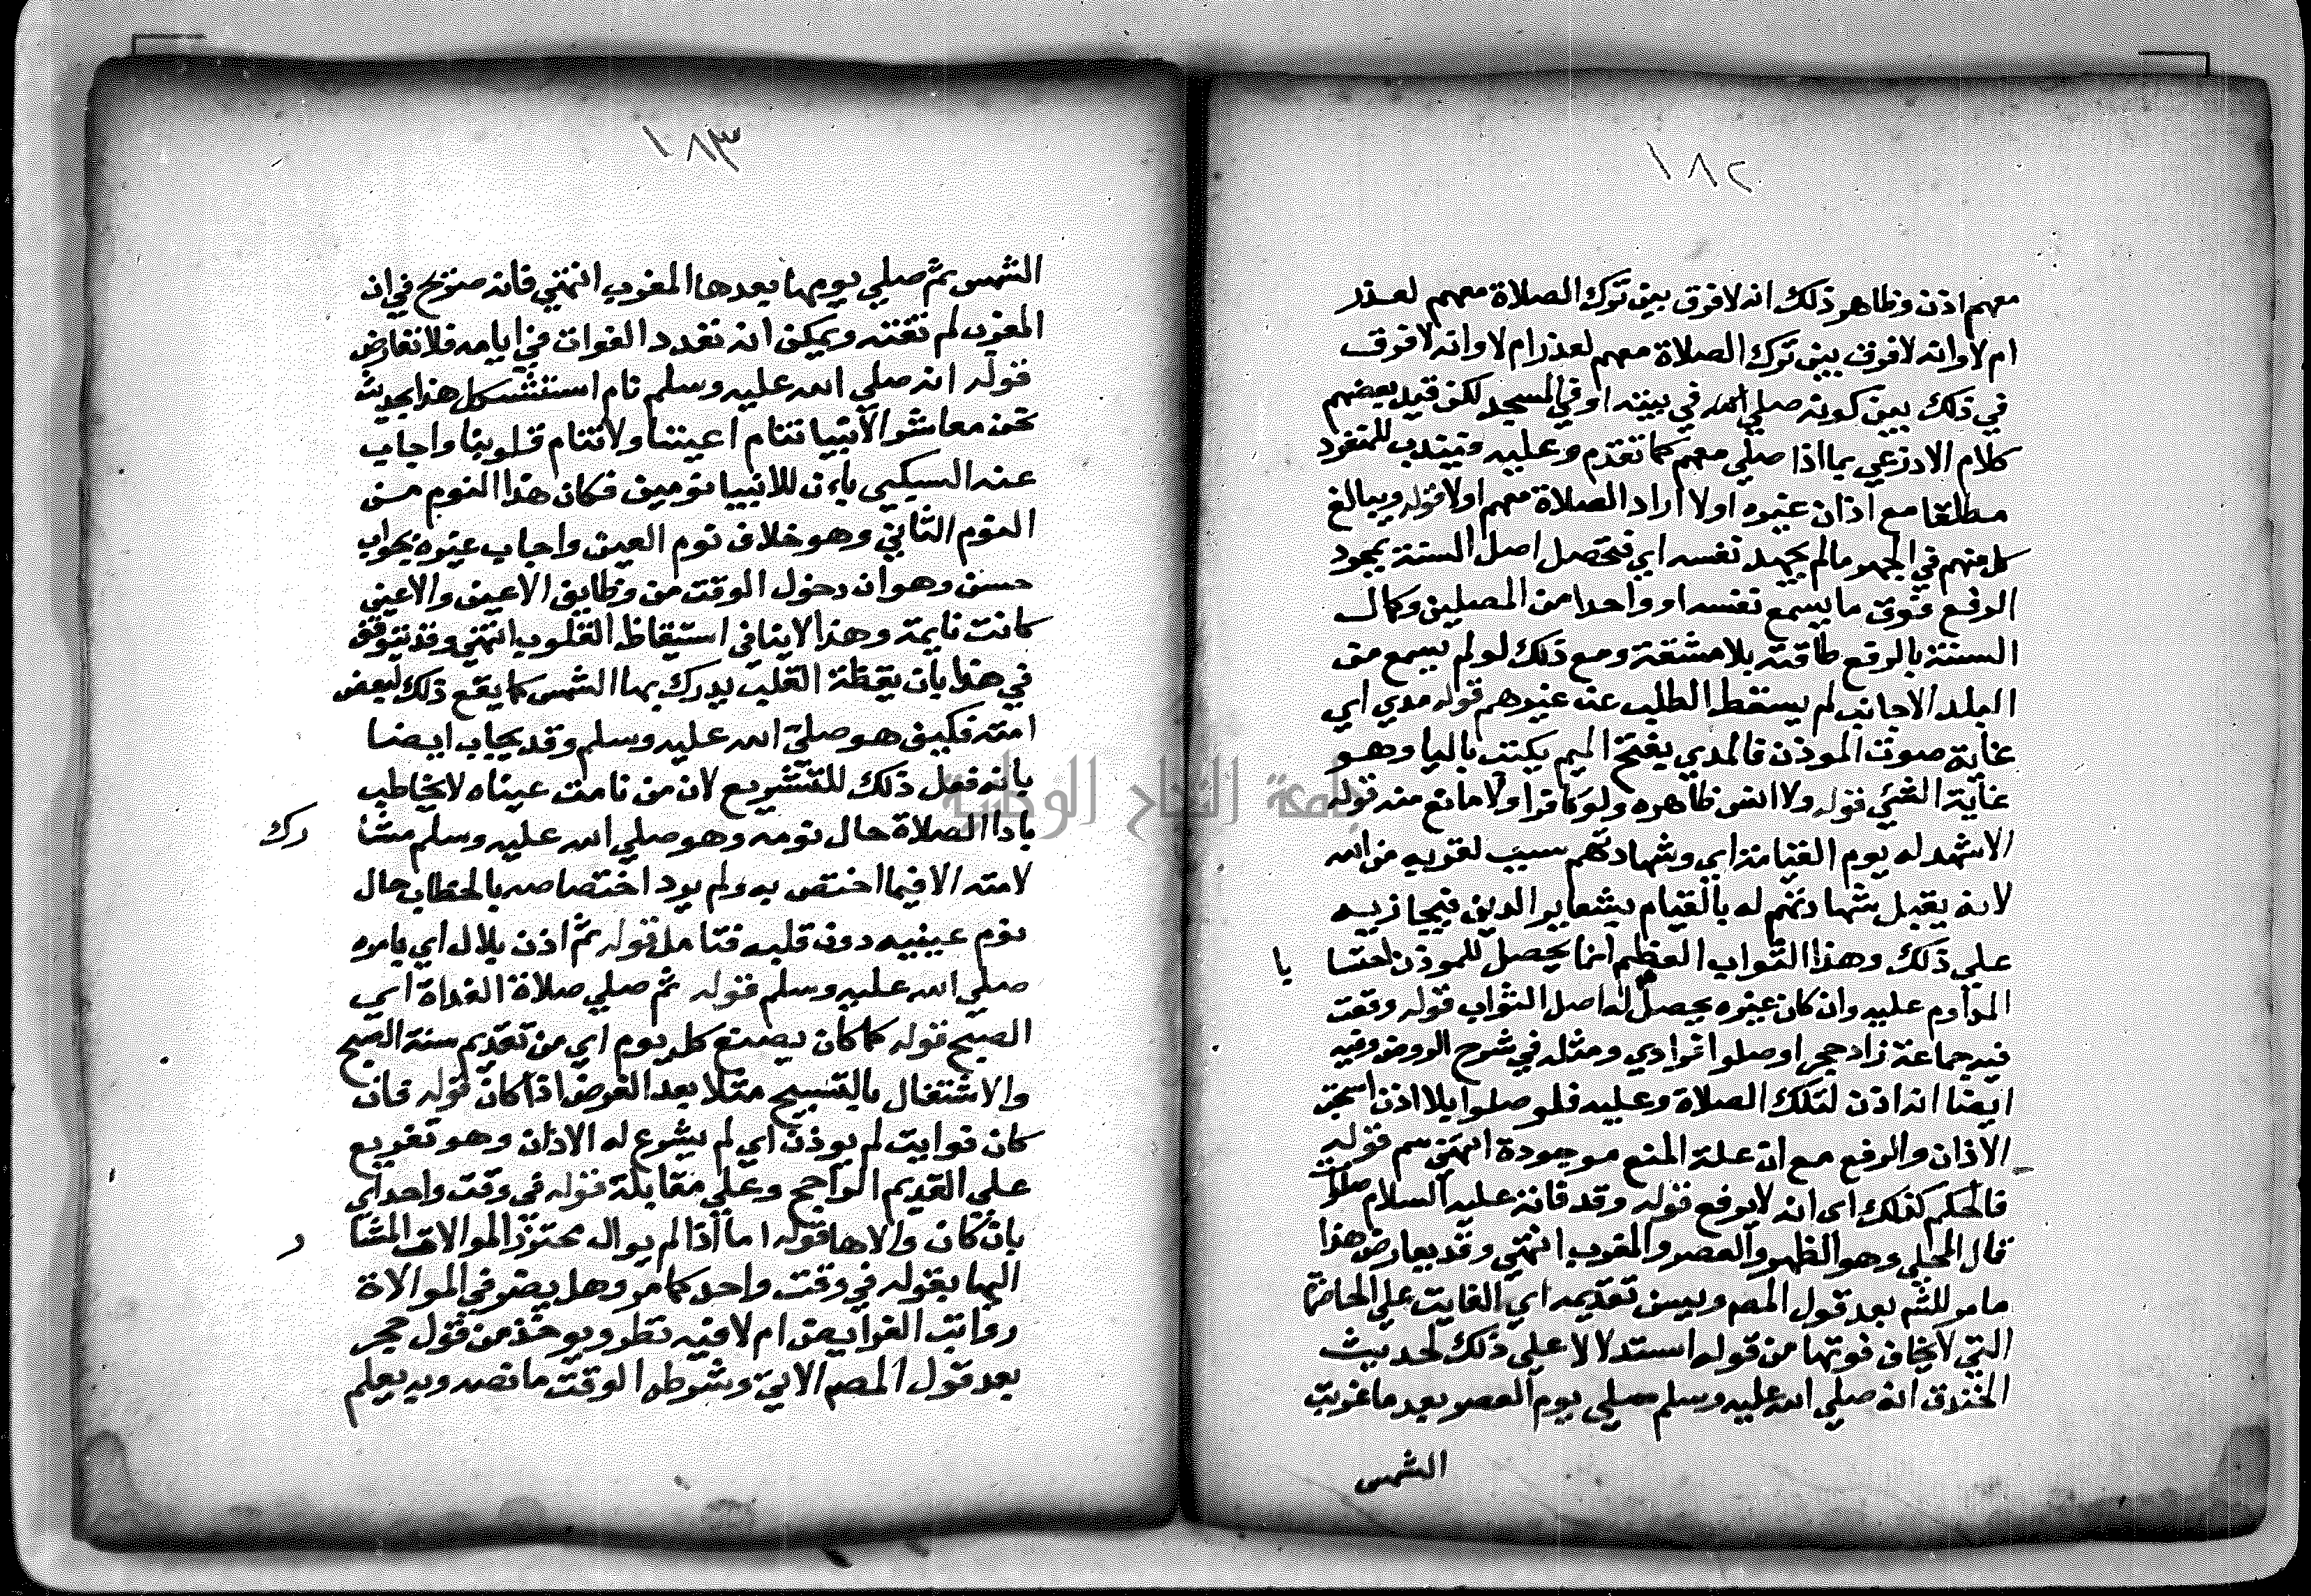 ١٨٢
معهم اذن وظاهر ذلك انه لا فرق بين ترك الصلاة معهم لعذر
ام لا وانه لا فرق بين ترك الصلاة معهم لعذر ام لا وانه لا فرق
في ذلك بين كونه صلي الله في بيته او في المسجد لكن قيد بعضهم
كلام الاذرعي بما اذا صلي معهم كما تقدم وعليه فيندب للمنفرد
مطلقا مع اذان غيره اولا اراد الصلاة معهم اولا قوله ويبالغ
كل منهم في الجهر ما لم يجهد نفسه اي فتحصل اصل السنة بمجرد
الرفع فوق ما يسمع نفسه او واحدا من المصلين وكمال
السنة بالرفع طاقته بلا مشقة ومع ذلك لو لم يسمع من
البلد الا جانب لم يسقط الطلب عن غيرهم قوله مدي اي
غاية صوت الموذن فالمدي بفتح الميم يكتب باليا وهو
غاية الشئي قوله ولا انس ظاهره ولو كافرا ولا مانع منه قوله
الا شهد له يوم القيامة اي وشهادتهم سبب لقربه من الله
لانه يقبل شهادتهم له بالقيام بشعاير الدين فيجازيه
علي ذلك وهذا الثواب العظيم انما يحصل للموذن احتسا
با
المداوم عليه وان كان غيره يحصل له اصل الثواب قوله وقعت
فيه جماعة زاد حجر او صلوا فرادي ومثله في شرح الروض وفيه
ايضا انه اذن لتلك الصلاة وعليه فلو صلوا بلا اذن استحق
الاذان والرفع مع ان علة المنع موجودة انتهي سم قوله
فالحكم كذلك اي انه لا يرفع قوله وقد فاته عليه السلام صلاة
قال المحلي وهو الظهر والعصر والمغرب انتهي وقد يعارض هذا
ما مر للشم بعد قول المصم ويسن تقديمه اي الفايت علي الحاضرة
التي لا يخاف فوتها من قوله استدلالا علي ذلك لحديث
الخندق انه صلي الله عليه وسلم صلي يوم العصر بعد ما غربت
الشمس
١٨٣
الشمس ثم صلي يومها بعدها المغرب انتهي فانه صريح في ان
المغرب لم تفته ويمكن انه تعدد الفوات في ايامه فلا تعارض
قوله انه صلي الله عليه وسلم نام استشكل هذا بحديث
نحن معاشر الانبيا تنام اعيننا ولا تنام قلوبنا واجاب
عنه السبكي بان للانبيا نومين فكان هذا النوم من
النوم الثاني وهو خلاف نوم العين واجاب غيره بجواب
حسن وهو ان دخول الوقت من وظايف الاعين والاعين
كانت نايمة وهذا لا ينافي استيقاظ القلوب انتهي وقد يتوقف
في هذا بان يقظة القلب يدرك بها الشمس كما يقع ذلك لبعض
امته فكيف هو صلي الله عليه وسلم وقد يجاب ايضا
بانه فعل ذلك للتشريع لان من نامت عيناه لا يخاطب
بادا الصلاة حال نومه وهو صلي الله عليه وسلم مشا
رك
لامته الا فيما اختص به ولم يرد اختصاصه بالخطاب حال
نوم عينيه دون قلبه فتامل قوله ثم اذن بلال اي بامره
صلي الله عليه وسلم قوله ثم صلي صلاة الغداة اي
الصبح قوله كما كان يصنع كل يوم اي من تقديم سنة الصبح
والاشتغال بالتسبيح مثلا بعد الفرض اذا كان قوله فان
كان فوايت لم يوذن اي لم يشرع له الاذان وهو تفريع
علي القديم الراجح وعلي مقابلة قوله في وقت واحد اي
بان كان والاها قوله اما اذا لم يواله محترز الموالات المشا
ر
اليها بقوله في وقت واحد كما مر وهل يضر في الموالاة
رواتب الفرايض ام لا فيه نظر ويوخذ من قول حجر
بعد قول المصم الاتي وشرطه الوقت ما نصه وبه يعلم
جامعة النجاح الوطنية